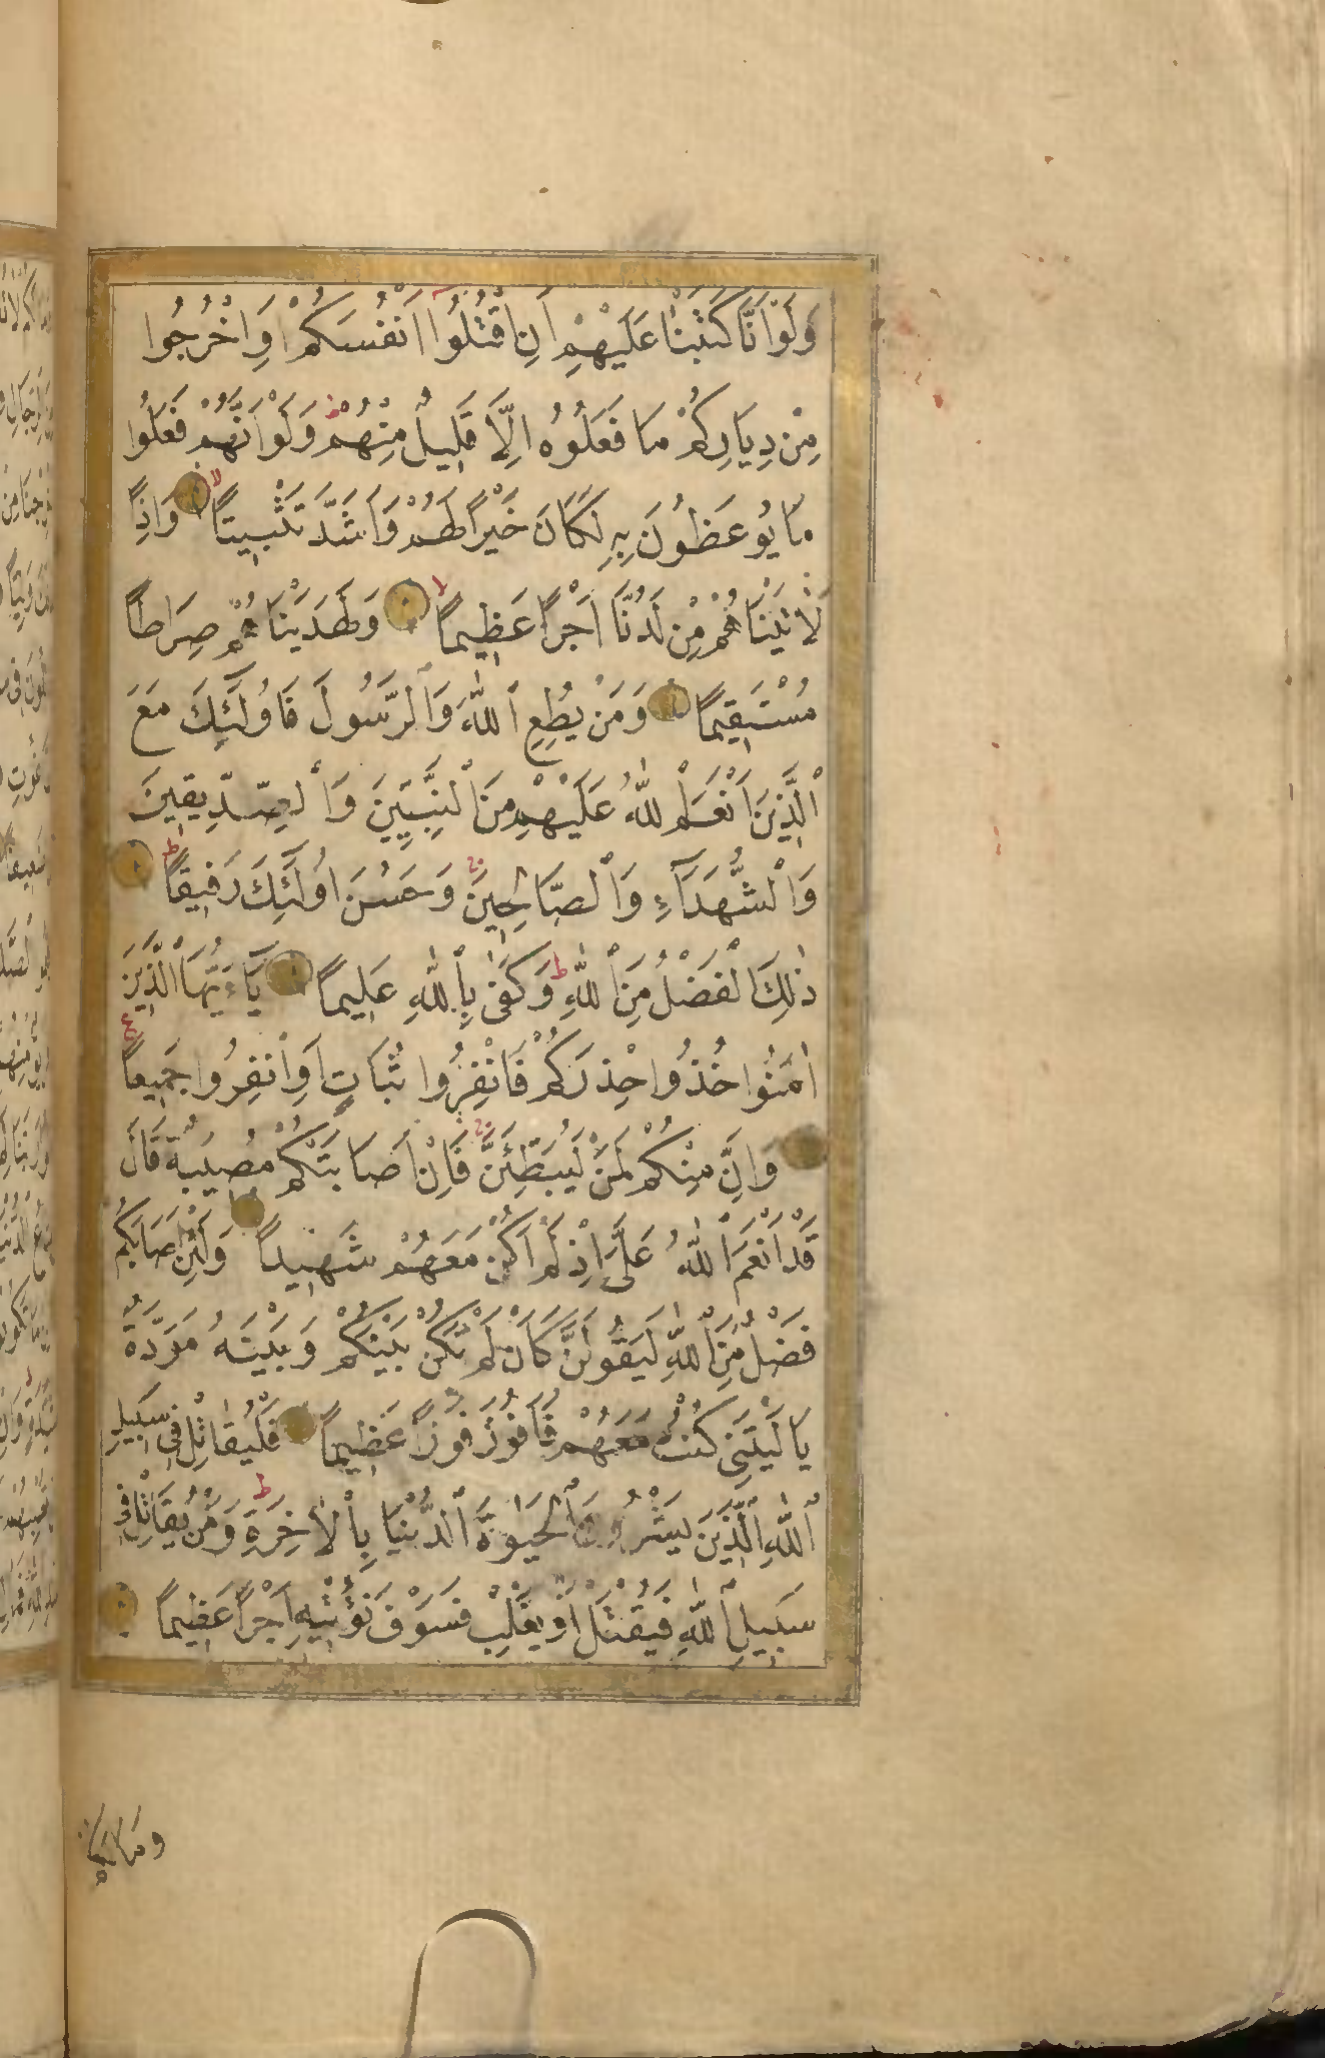 وَلَوْ اَنَّا كَتَبْنَا عَلَيْهِمْ اَنِ اقْتُلُوا اَنْفُسَكُمْ اَوِ اخْرُجُوا
مِنْ دِيَارِكُمْ مَا فَعَلُوهُ اِلَّا قَلِيلٌ مِنْهُمْ وَلَوْ اَنَّهُمْ فَعَلُوا
مَا يُوعَظُونَ بِهِ لَكَانَ خَيْراً لَهُمْ وَاَشَدَّ تَثْبِيتاً وَاِذاً
لَاٰتَيْنَاهُمْ مِنْ لَدُنَّا اَجْراً عَظِيماً وَلَهَدَيْنَاهُمْ صِرَاطاً
مُسْتَقِيماً وَمَنْ يُطِعِ اللّٰهَ وَالرَّسُولَ فَاُولٰٓئِكَ مَعَ
الَّذِينَ اَنْعَمَ اللّٰهُ عَلَيْهِمْ مِنَ النَّبِيِّينَ وَالصِّدِّيقِينَ
وَالشُّهَدَآءِ وَالصَّالِحِينَ وَحَسُنَ اُولٰٓئِكَ رَفِيقاً
ذٰلِكَ الْفَضْلُ مِنَ اللّٰهِ وَكَفٰى بِاللّٰهِ عَلِيماً يَآءَيُّهَا الَّذِينَ
اٰمَنُوا خُذُوا حِذْرَكُمْ فَانْفِرُوا ثُبَاتٍ اَوِ انْفِرُوا جَمِيعاً
وَاِنَّ مِنْكُمْ لَمَنْ لَيُبَطِّئَنَّ فَاِنْ اَصَابَتْكُمْ مُصِيبَةٌ قَالَ
قَدْ اَنْعَمَ اللّٰهُ عَلَيَّ اِذْ لَمْ اَكُنْ مَعَهُمْ شَهِيداً وَلَئِنْ اَصَابَكُمْ
فَضْلٌ مِنَ اللّٰهِ لَيَقُولَنَّ كَاَنْ لَمْ تَكُنْ بَيْنَكُمْ وَبَيْنَهُ مَوَدَّةٌ
يَا لَيْتَنِي كُنْتُ مَعَهُمْ فَاَفُوزَ فَوْزاً عَظِيماً فَلْيُقَاتِلْ فِي سَبِيلِ
اللّٰهِ الَّذِينَ يَشْرُونَ الْحَيٰوةَ الدُّنْيَا بِالْاٰخِرَةِ وَمَنْ يُقَاتِلْ فِي
سَبِيلِ اللّٰهِ فَيُقْتَلْ اَوْ يَغْلِبْ فَسَوْفَ نُؤْتِيهِ اَجْراً عَظِيماً
وما لكم